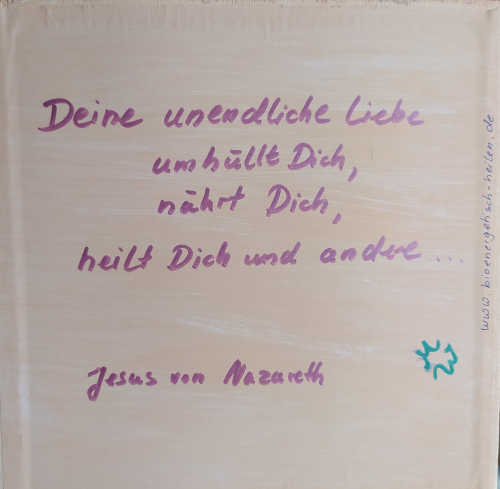 Deine unendliche Liebe
umhüllt Dich,
nährt Dich,
heilt Dich und andere...
Jesus von Nazareth
www.bioenergetisch-heilen.de